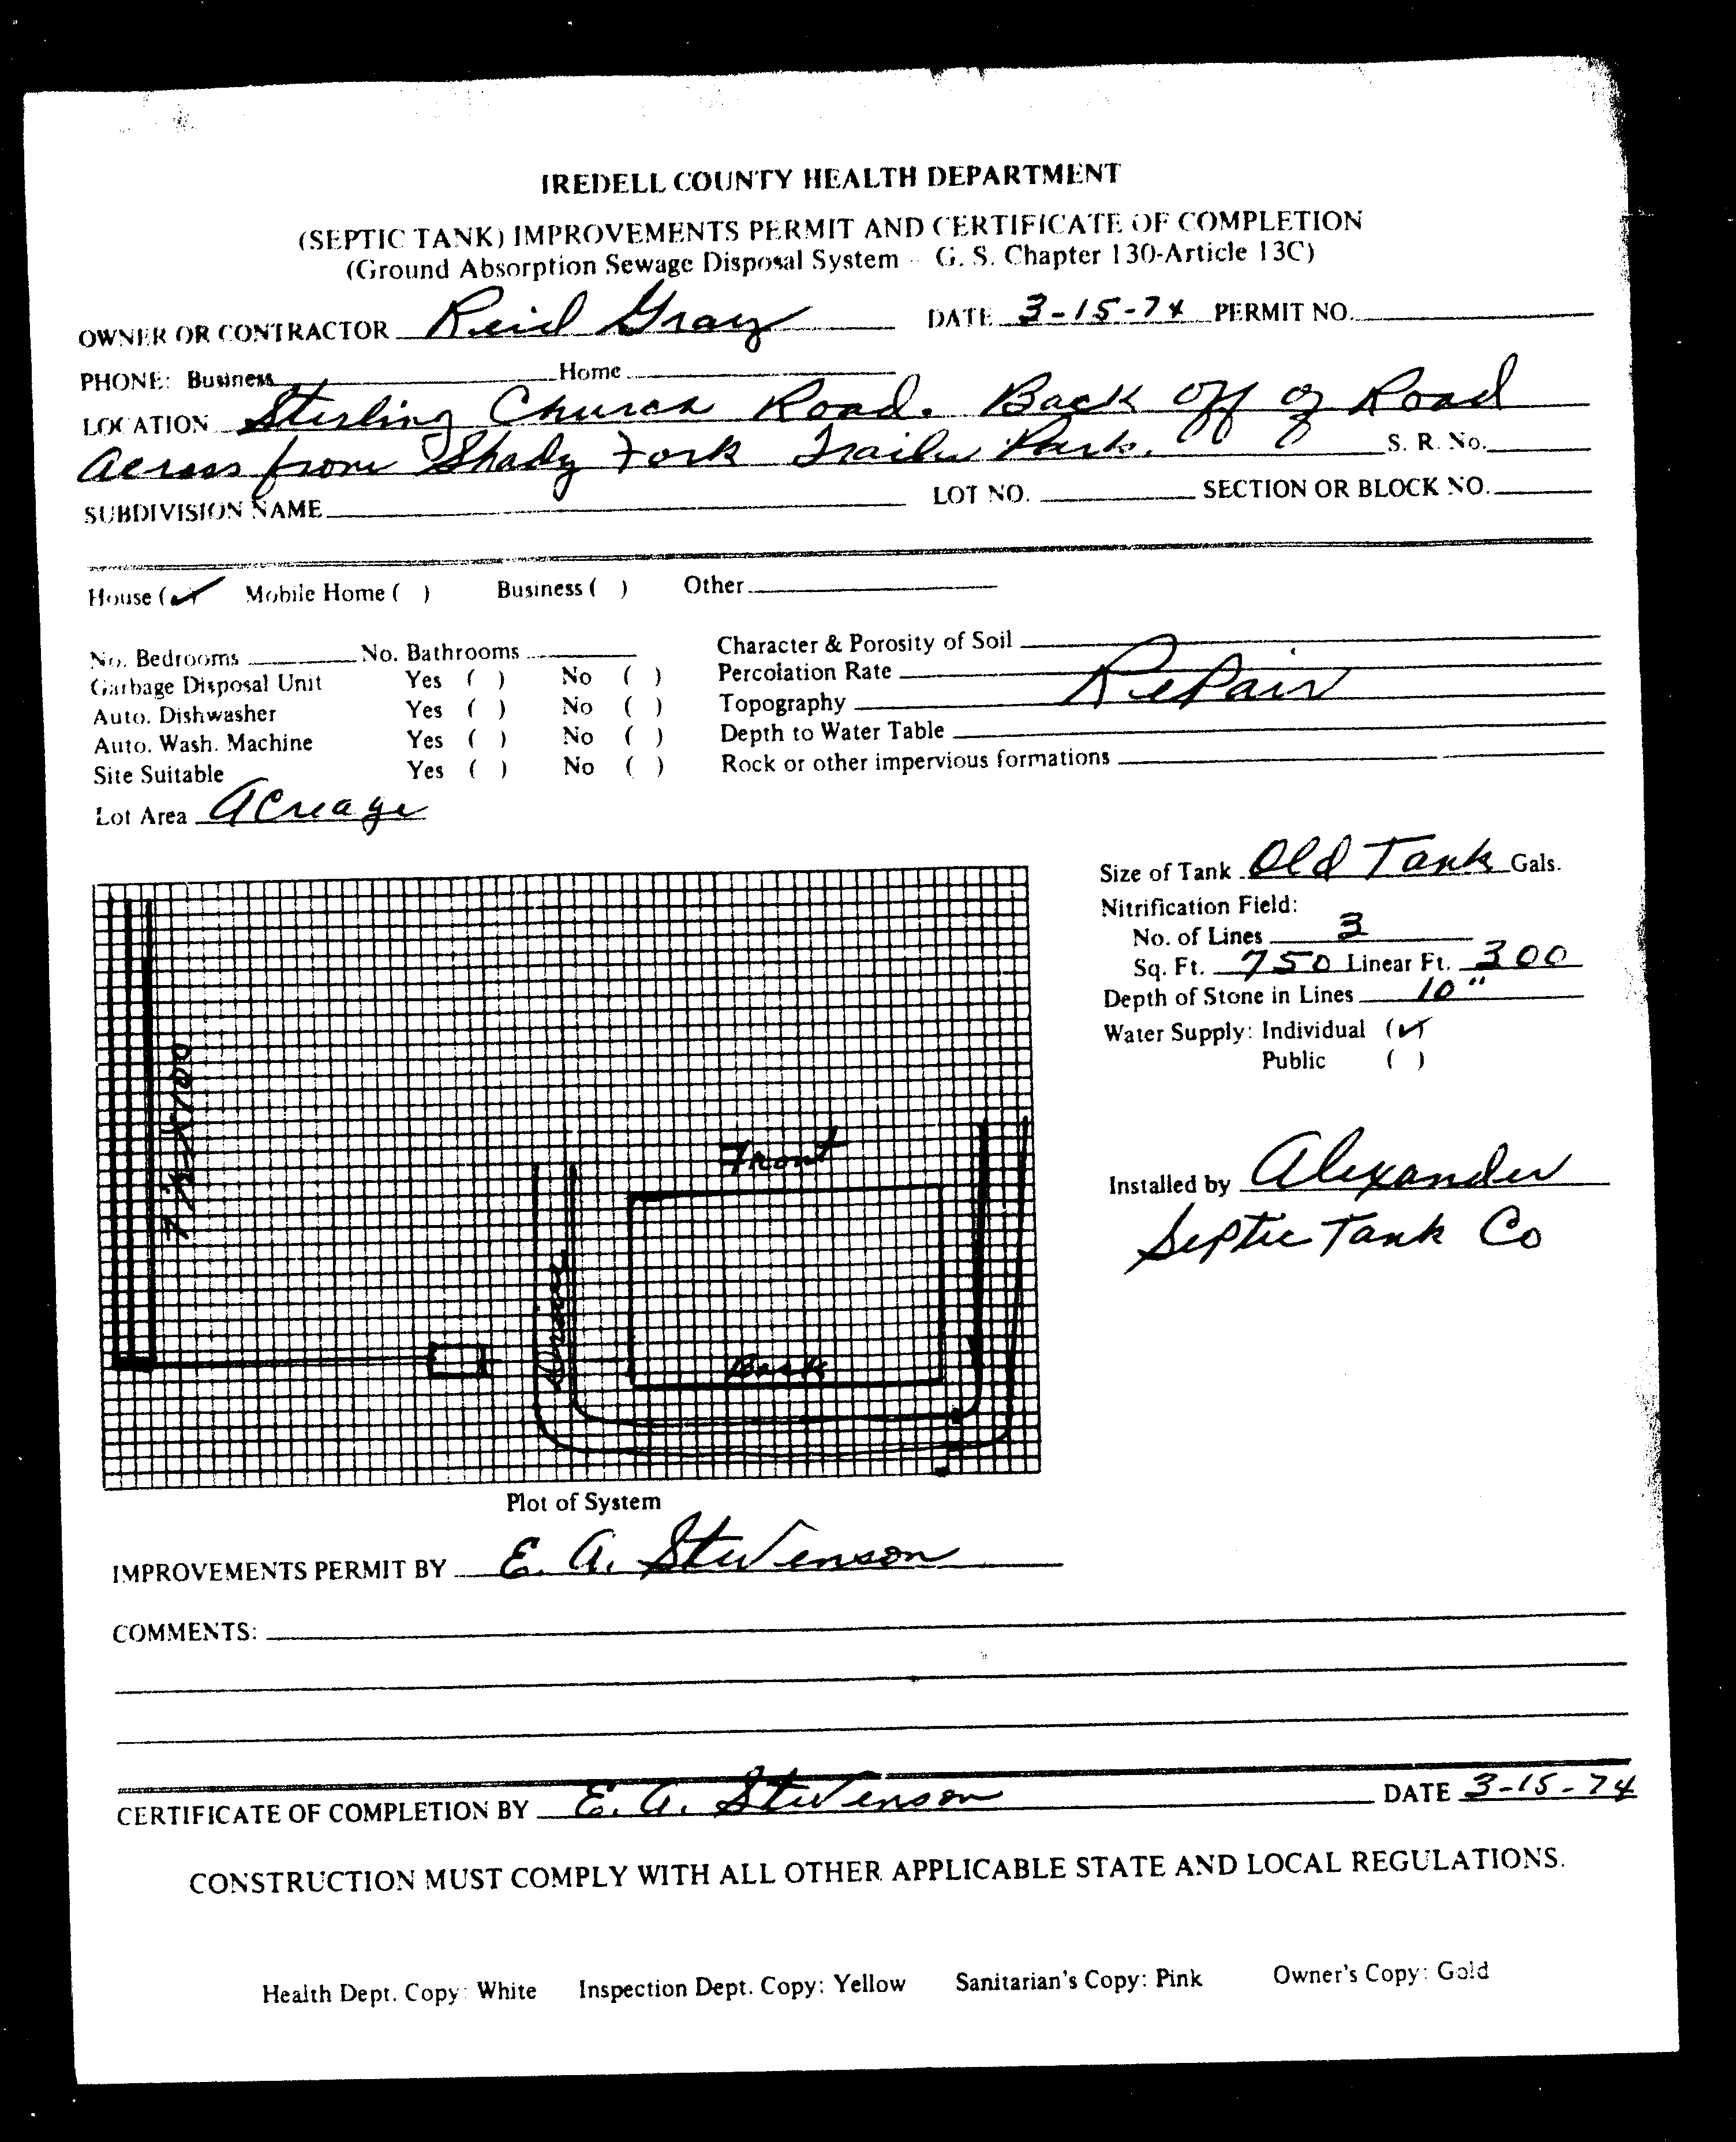 IREDELL COUNTY HEALTH DEPARTMENT
(SEPTIC TANK) IMPROVEMENTS PERMIT AND CERTIFICATE OF COMPLETION
(Ground Absorption Sewage Disposal System - G. S. Chapter 130-Article 13C)
OWNER OR CONTRACTOR Reid Gray DATE 3-15-74 PERMIT NO.
PHONE: Business Home
LOCATION Sterling Church Road. Back off of Road
across from Shady Fork Trailer Park. S. R. No.
SUBDIVISION NAME LOT NO. SECTION OR BLOCK NO.
House (✓) Mobile Home ( ) Business ( ) Other
No. Bedrooms No. Bathrooms Character & Porosity of Soil
Garbage Disposal Unit Yes ( ) No ( ) Percolation Rate Repair
Auto. Dishwasher Yes ( ) No ( ) Topography
Auto. Wash. Machine Yes ( ) No ( ) Depth to Water Table
Site Suitable Yes ( ) No ( ) Rock or other impervious formations
Lot Area acreage
Size of Tank Old Tank Gals.
Nitrification Field:
No. of Lines 3
Sq. Ft. 750 Linear Ft. 300
Depth of Stone in Lines 10"
Water Supply: Individual (✓)
Public ( )
Front
Back
Installed by Alexander
Septic Tank Co
Plot of System
IMPROVEMENTS PERMIT BY E. A. Stevenson
COMMENTS:
CERTIFICATE OF COMPLETION BY E. A. Stevenson DATE 3-15-74
CONSTRUCTION MUST COMPLY WITH ALL OTHER APPLICABLE STATE AND LOCAL REGULATIONS.
Health Dept. Copy: White Inspection Dept. Copy: Yellow Sanitarian's Copy: Pink Owner's Copy: Gold